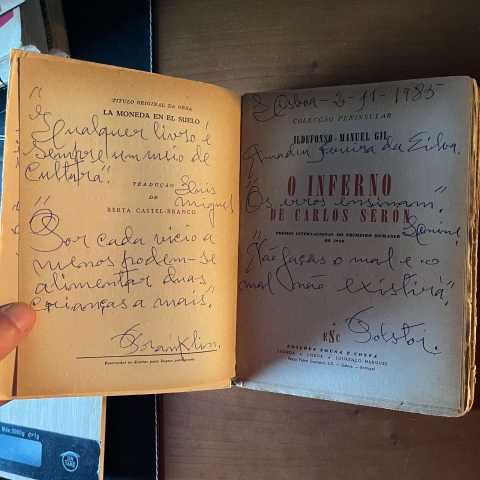 TÍTULO ORIGINAL DA OBRA
LA MONEDA EN EL SUELO
"Qualquer livro é
sempre um meio de
Cultura".
TRADUÇÃO
DE
BERTA CASTEL-BRANCO
Luis
Miguel
"Por cada vício a
menos podem-se
alimentar duas
crianças a mais".
Franklin.
Reservados os direitos para língua portuguesa
Lisboa - 2-11-1985
COLECÇÃO PENINSULAR
ILDEFONSO-MANUEL GIL
Amadeu Ferreira da Silva.
O INFERNO
DE CARLOS SERÓN
"Os erros ensinam."
Lenine.
PRÉMIO INTERNACIONAL DO PRIMEIRO ROMANCE
DE 1950
"Não faças o mal e o
mal não existirá".
Tolstoi.
ESC
EDIÇÕES SOUSA E COSTA
LUANDA • LISBOA • LOURENÇO MARQUES
Lisboa - Portugal
Max: 5000g d=1g